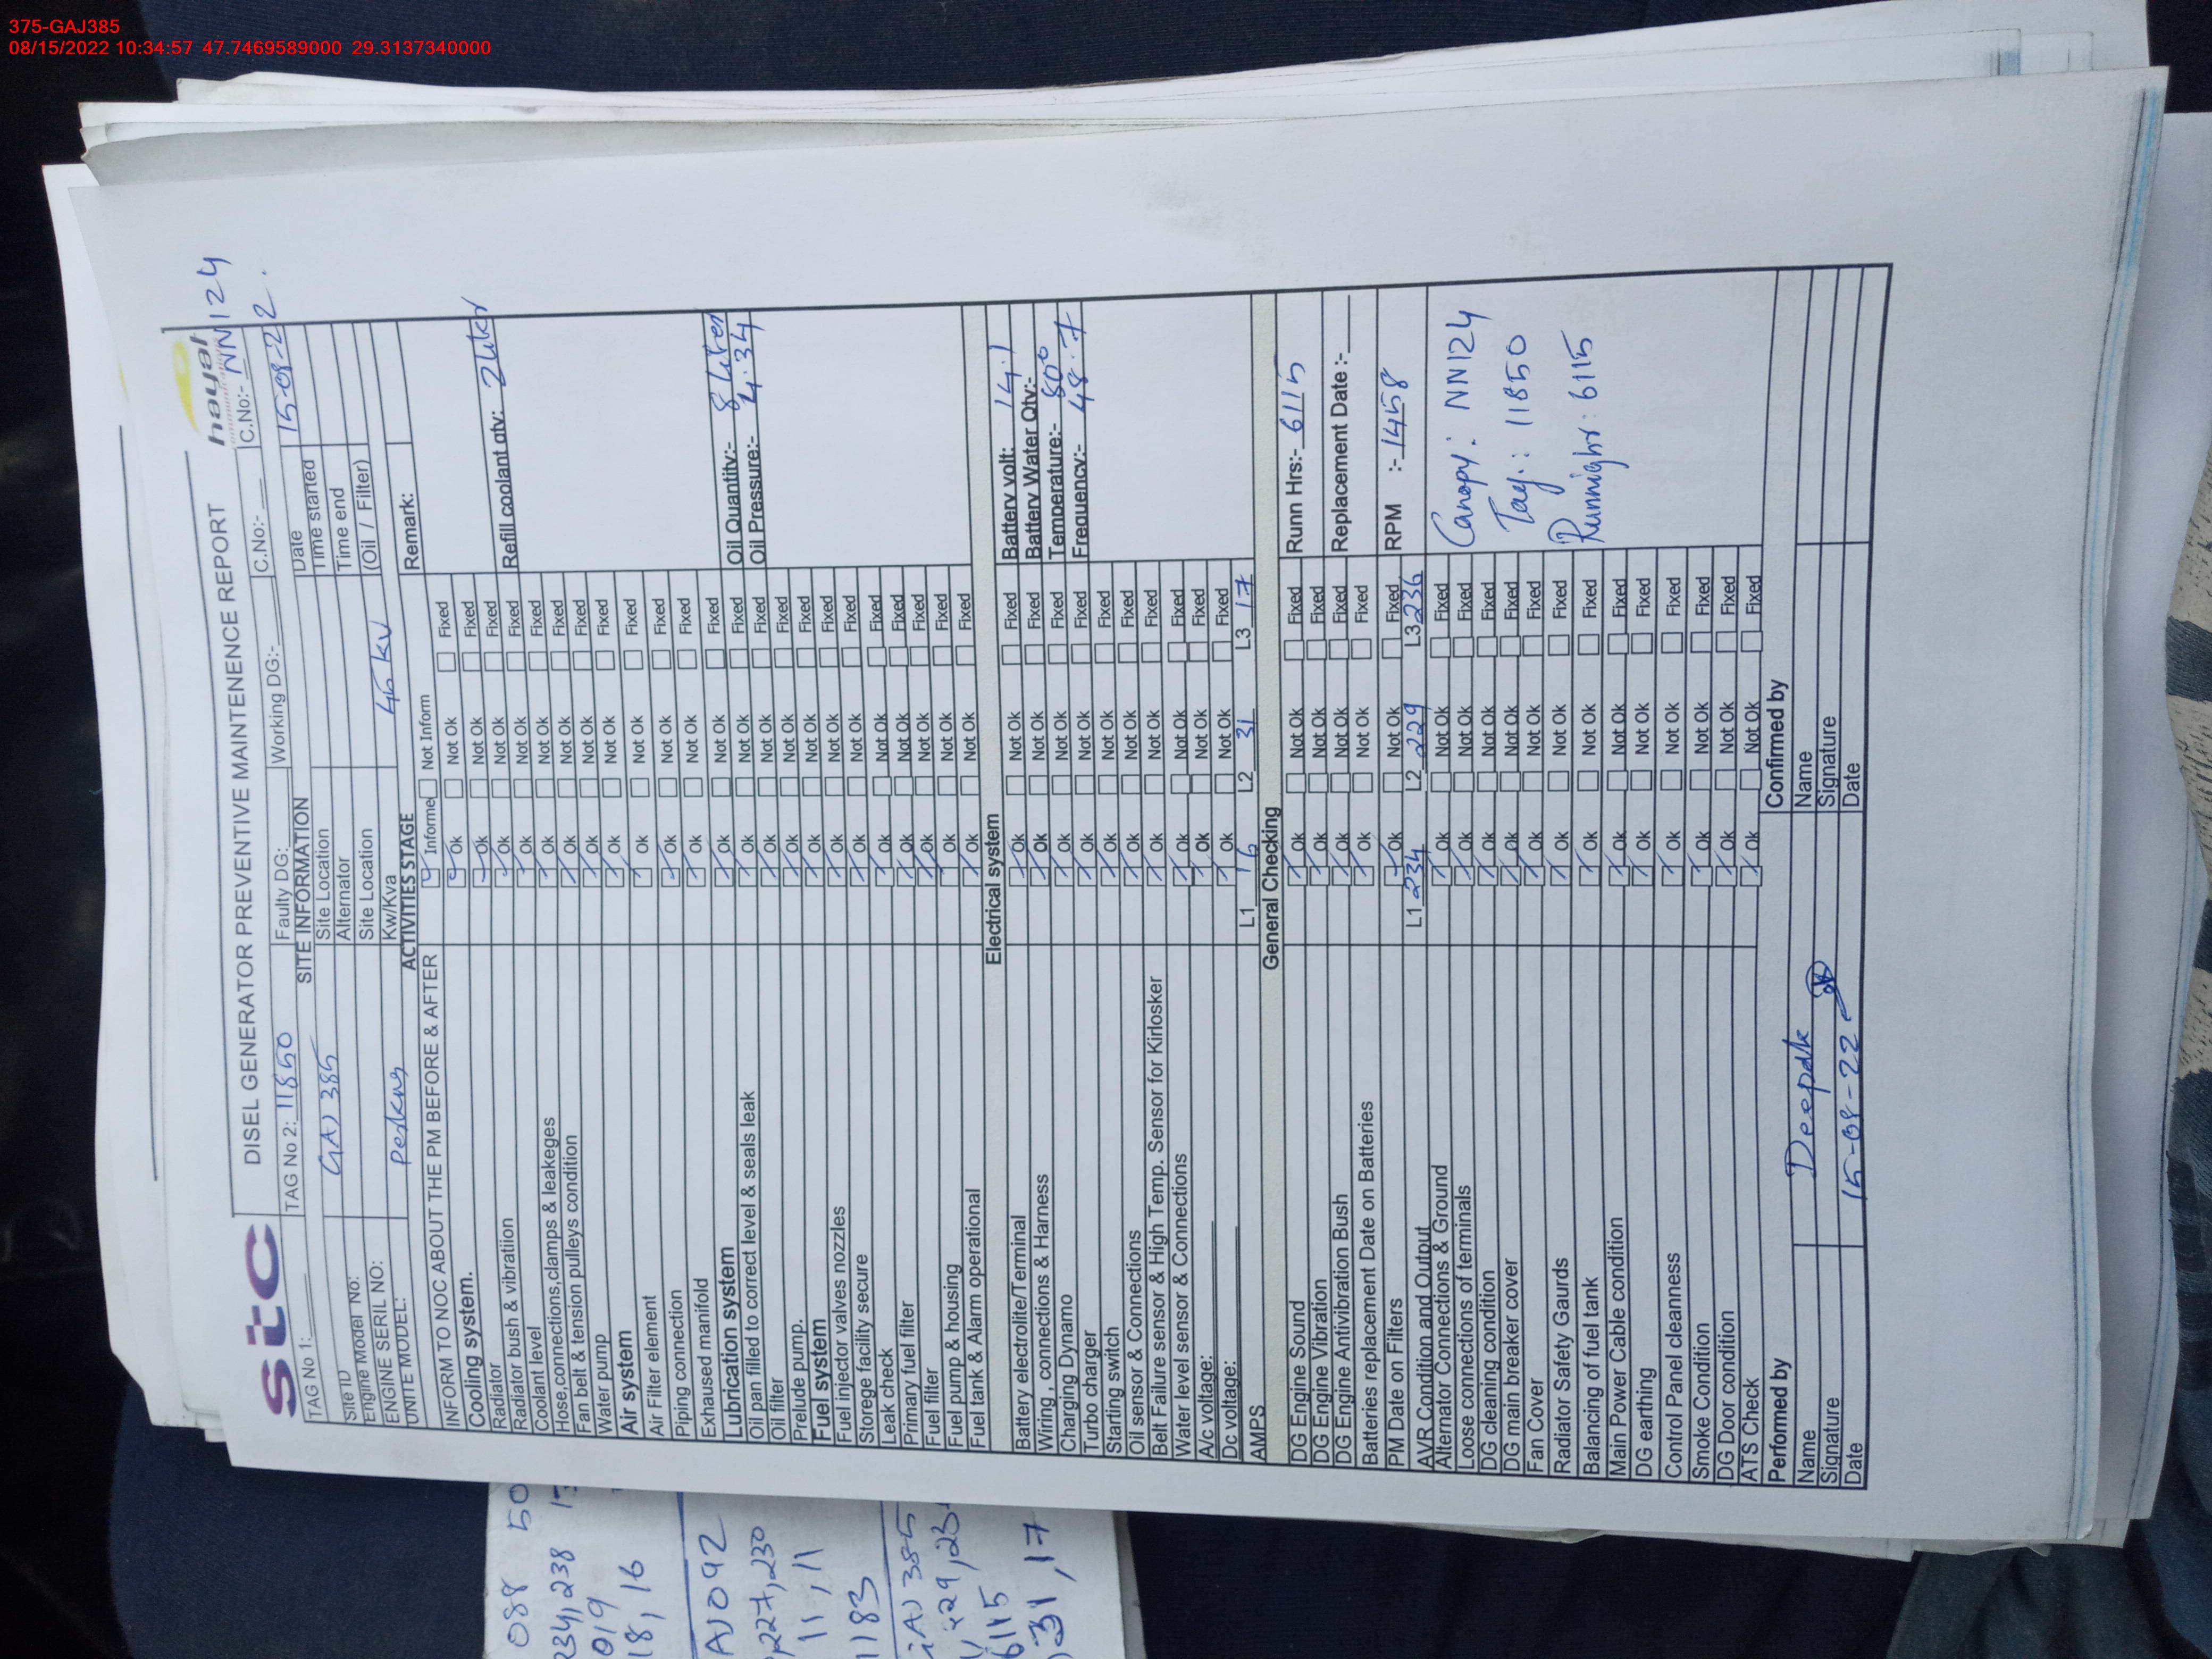 375-GAJ385
08/15/2022 10:34:57 47.7469589000 29.3137340000
stc
hayat
DISEL GENERATOR PREVENTIVE MAINTENENCE REPORT
C.No:- NN124
TAG No 1:
TAG No 2: 11850
Faulty DG:
Working DG:-
C.No:-
SITE INFORMATION
Date 15-08-22
Site ID GAJ 385
Site Location
Time started
Engine Model No:
Alternator
Time end
ENGINE SERIL NO:
Site Location
(Oil / Filter)
UNITE MODEL: perkins
Kw/Kva 45 kv
ACTIVITIES STAGE
Remark:
INFORM TO NOC ABOUT THE PM BEFORE & AFTER Informe Not Inform
Cooling system. Ok Not Ok Fixed
Radiator Ok Not Ok Fixed
Radiator bush & vibratiion Ok Not Ok Fixed
Refill coolant qty: 2 liter
Coolant level Ok Not Ok Fixed
Hose,connections,clamps & leakeges Ok Not Ok Fixed
Fan belt & tension pulleys condition Ok Not Ok Fixed
Water pump Ok Not Ok Fixed
Air system Ok Not Ok Fixed
Air Filter element Ok Not Ok Fixed
Piping connection Ok Not Ok Fixed
Exhaused manifold Ok Not Ok Fixed
Lubrication system Ok Not Ok Fixed
Oil Quantity:- 8 liter
Oil pan filled to correct level & seals leak Ok Not Ok Fixed
Oil Pressure:- 4.34
Oil filter Ok Not Ok Fixed
Prelude pump. Ok Not Ok Fixed
Fuel system Ok Not Ok Fixed
Fuel injector valves nozzles Ok Not Ok Fixed
Storege facility secure Ok Not Ok Fixed
Leak check Ok Not Ok Fixed
Primary fuel filter Ok Not Ok Fixed
Fuel filter Ok Not Ok Fixed
Fuel pump & housing Ok Not Ok Fixed
Fuel tank & Alarm operational Ok Not Ok Fixed
Electrical system
Battery electrolite/Terminal Ok Not Ok Fixed Battery volt: 14.1
Wiring, connections & Harness Ok Not Ok Fixed Battery Water Qty:-
Charging Dynamo Ok Not Ok Fixed Temperature:- 80°
Turbo charger Ok Not Ok Fixed Frequency:- 48.7
Starting switch Ok Not Ok Fixed
Oil sensor & Connections Ok Not Ok Fixed
Belt Failure sensor & High Temp. Sensor for Kirlosker Ok Not Ok Fixed
Water level sensor & Connections Ok Not Ok Fixed
A/c voltage: Ok Not Ok Fixed
Dc voltage: Ok Not Ok Fixed
AMPS L1 16 L2 31 L3 17
General Checking
DG Engine Sound Ok Not Ok Fixed Runn Hrs:- 6115
DG Engine Vibration Ok Not Ok Fixed
DG Engine Antivibration Bush Ok Not Ok Fixed Replacement Date :-
Batteries replacement Date on Batteries Ok Not Ok Fixed
PM Date on Filters Ok Not Ok Fixed RPM :- 1458
AVR Condition and Output L1 234 L2 229 L3 236
Alternator Connections & Ground Ok Not Ok Fixed
Loose connections of terminals Ok Not Ok Fixed
Canopy : NN124
DG cleaning condition Ok Not Ok Fixed
DG main breaker cover Ok Not Ok Fixed
Tag : 11850
Fan Cover Ok Not Ok Fixed
Radiator Safety Gaurds Ok Not Ok Fixed
Runnighr : 6115
Balancing of fuel tank Ok Not Ok Fixed
Main Power Cable condition Ok Not Ok Fixed
DG earthing Ok Not Ok Fixed
Control Panel cleanness Ok Not Ok Fixed
Smoke Condition Ok Not Ok Fixed
DG Door condition Ok Not Ok Fixed
ATS Check Ok Not Ok Fixed
Performed by Confirmed by
Name Deepak Name
Signature Signature
Date 15-08-22 Date
088 50
234,238
019
18,16
AJ092
227,230
11,11
1183
AJ 385
6115
31,17